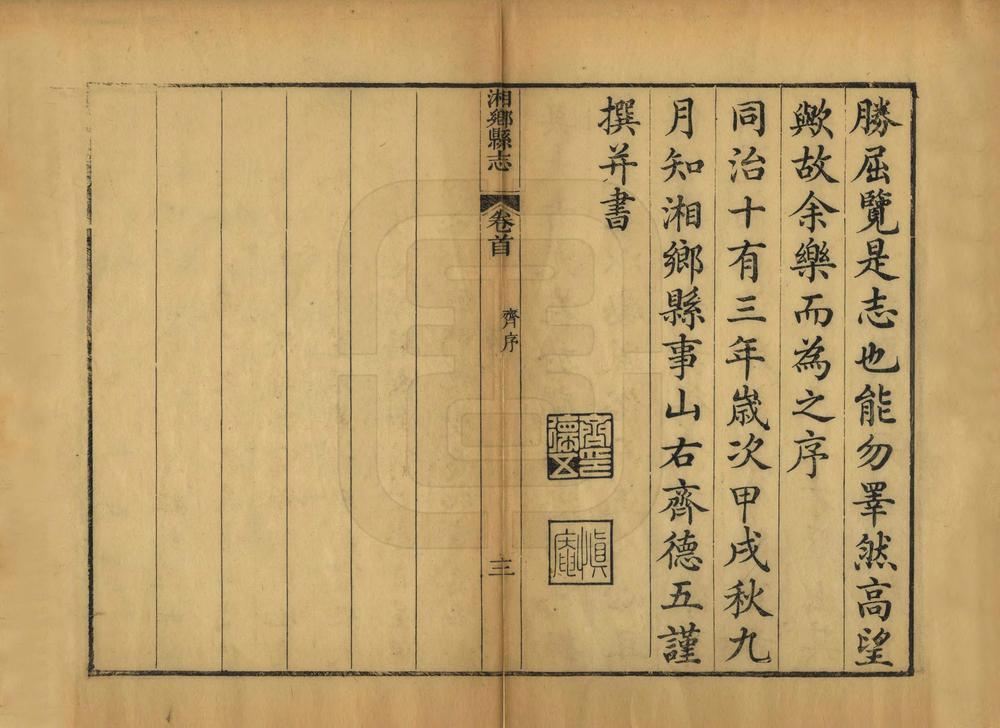 勝屈覽是志也能勿睪然高望
歟故余樂而為之序
同治十有三年歲次甲戌秋九
月知湘鄉縣事山右齊德五謹
撰并書
齊德五印
湘鄉縣志
卷首
齊序
三